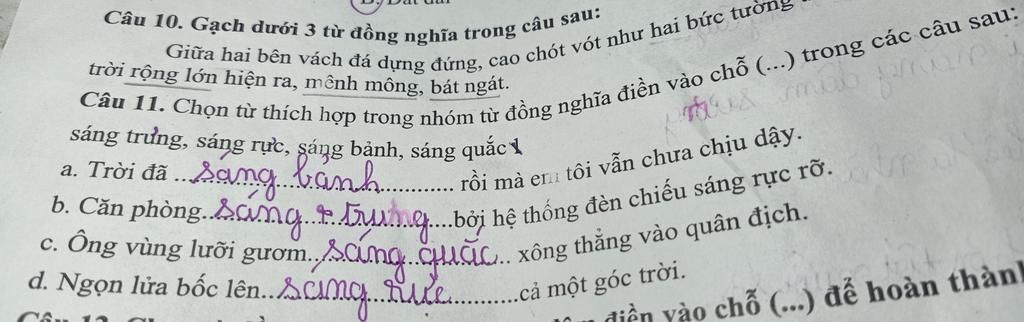 Câu 10. Gạch dưới 3 từ đồng nghĩa trong câu sau:
Giữa hai bên vách đá dựng đứng, cao chót vót như hai bức tường
trời rộng lớn hiện ra, mênh mông, bát ngát.
Câu 11. Chọn từ thích hợp trong nhóm từ đồng nghĩa điền vào chỗ (...) trong các câu sau:
sáng trưng, sáng rực, sáng bảnh, sáng quắc
a. Trời đã ...sáng bảnh............... rồi mà em tôi vẫn chưa chịu dậy.
b. Căn phòng..sáng trưng....bởi hệ thống đèn chiếu sáng rực rỡ.
c. Ông vùng lưỡi gươm..sáng quắc.. xông thẳng vào quân địch.
d. Ngọn lửa bốc lên..sáng rực...........cả một góc trời.
điền vào chỗ (...) để hoàn thành